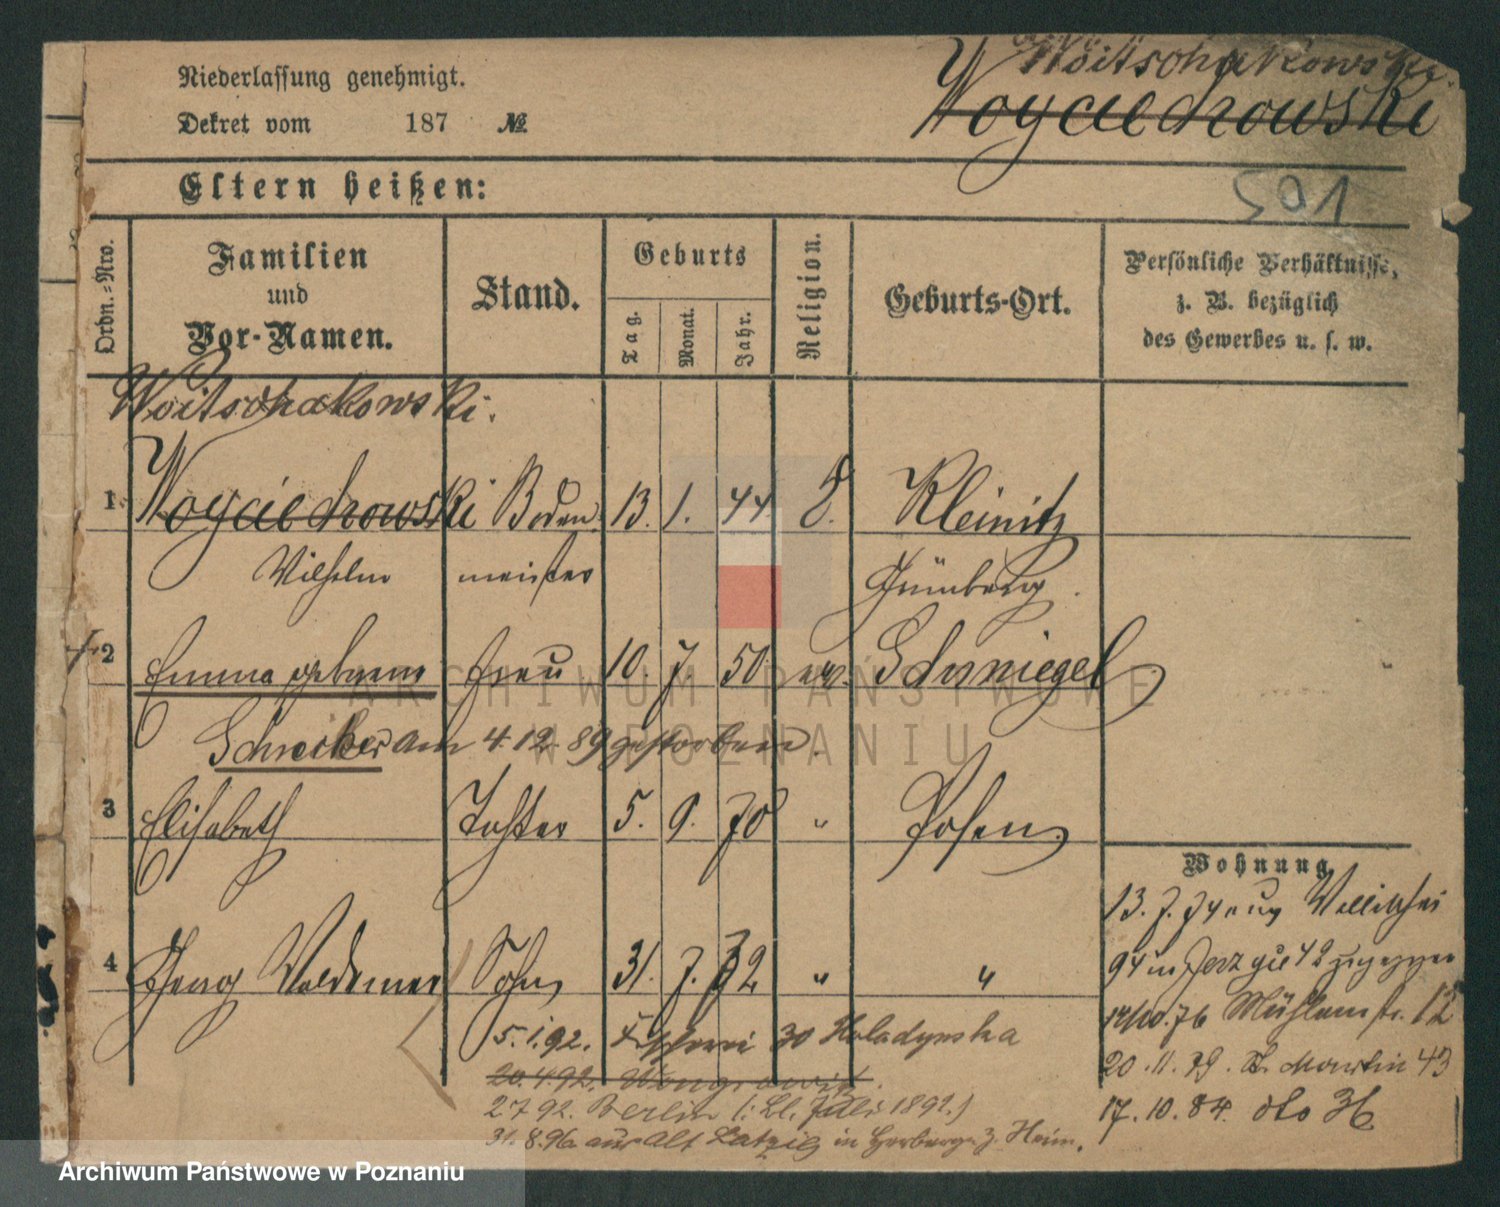 Niederlassung genehmigt.
Woitschakowski.
Dekret vom 187 №
Woyciechowski
Eltern heißen:
591
Ordn.-Nro.
Familien und Vor-Namen.
Stand.
Geburts
Tag.
Monat.
Jahr.
Religion.
Geburts-Ort.
Persönliche Verhältnisse, z. B. bezüglich des Gewerbes u. s. w.
Woitschakowski.
1 Woyciechowski Boden 13. 1. 44 Kleinitz
Wilhelm meister Grünberg.
2 Emma geborene Frau 10. 7. 50 ev. Schmiegel
Schneider am 4.12.89 gestorben.
3 Elisabeth Tochter 5. 9. 70 " Posen
Wohnung
13. 7.
4 Georg Waldemar Sohn 31. 7. 72 " "
94 in 42
5.1.92. Fischerei 30 Kaladynska
14/10.76 Mühlenstr. 12
20.4.92. Wongrowitz.
20. 11. 79. St. Martin 43
2 7 92. Berlin (: Ll. Juli 1892.)
17. 10. 84. dto 36
31. 8.96. aus Alt Latzig in Herberge z. Heim.
ARCHIWUM PAŃSTWOWE
W POZNANIU
Archiwum Państwowe w Poznaniu